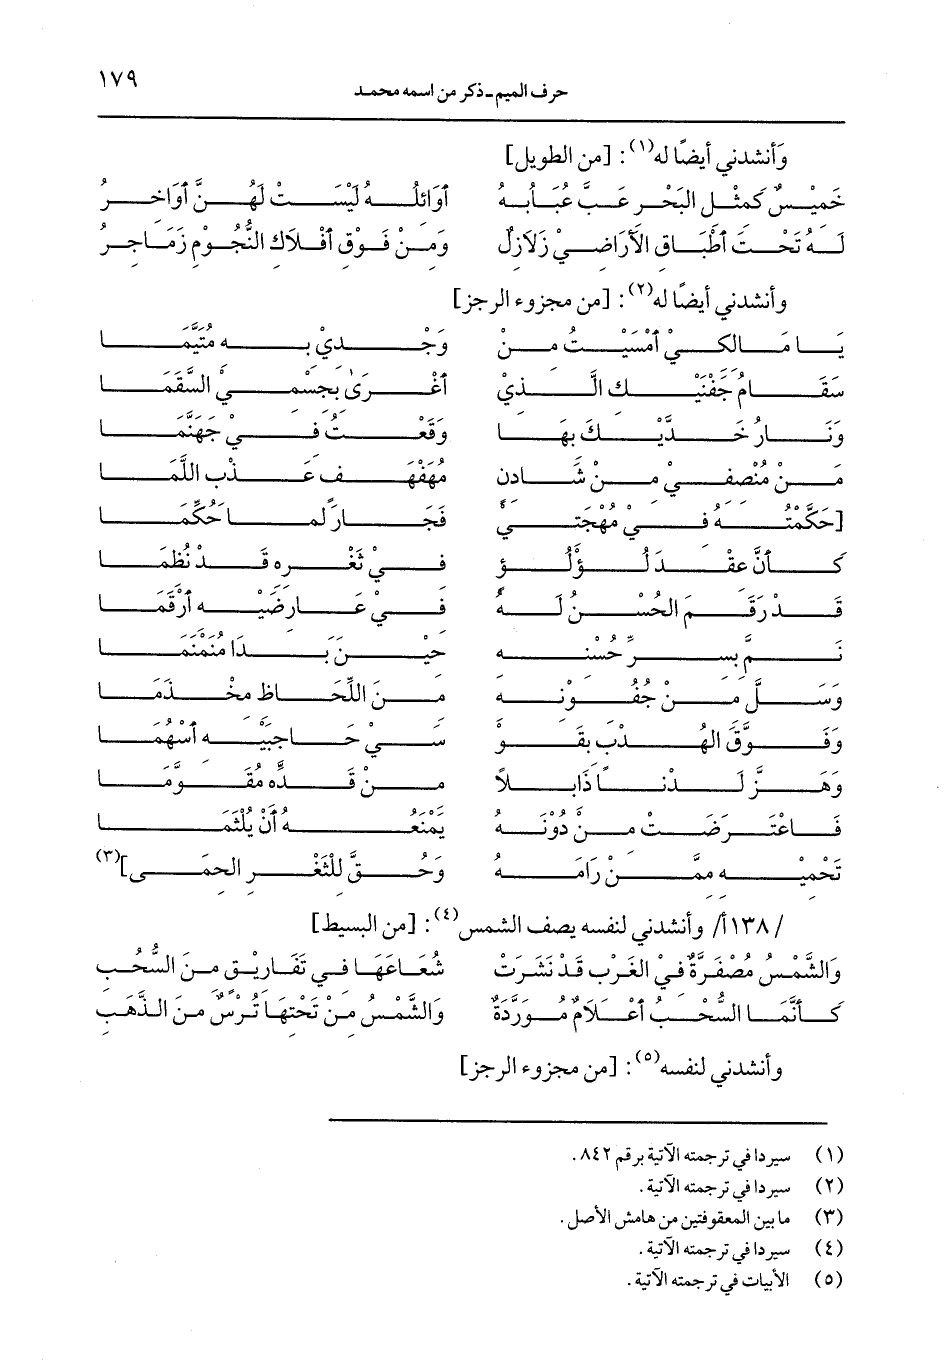 حرف الميم - ذكر من اسمه محمد ١٧٩
وَأنشدني أيضًا له(١): [من الطويل]
خَمِيْسٌ كَمِثْلِ البَحْرِ عَبَّ عُبَابُهُ أوَائِلُهُ لَيْسَتْ لَهُنَّ أوَاخِرُ
لَهُ تَحْتَ أطْبَاقِ الأرَاضِيْ زَلَازِلٌ وَمِنْ فَوْقِ أفْلَاكِ النُّجُوْمِ زَمَاجِرُ
وأنشدني أيضًا له(٢): [من مجزوء الرجز]
يَا مَالِكِيْ أمْسَيْتُ مِنْ وَجْدِيْ بِهِ مُتَيَّمَا
سَقَامُ جَفْنَيْكَ الَّذِيْ أغْرَىٰ بِجِسْمِيْ السَّقَمَا
وَنَارُ خَدَّيْكَ بِهَا وَقَعْتُ فِيْ جَهَنَّمَا
مَنْ مُنْصِفِيْ مِنْ شَادِنٍ مُهَفْهَفٍ عَذْبِ اللَّمَا
[حَكَّمْتُهُ فِيْ مُهْجَتِيْ فَجَارَ لَمَا حُكِّمَا
كَأنَّ عِقْدَ لُؤْلُؤٍ فِيْ ثَغْرِهِ قَدْ نُظِمَا
قَدْ رَقَمَ الحُسْنُ لَهُ فِيْ عَارِضَيْهِ أرْقَمَا
نَمَّ بِسِرِّ حُسْنِهِ حِيْنَ بَدَا مُنَمْنَمَا
وَسَلَّ مِنْ جُفُوْنِهِ مِنَ اللِّحَاظِ مِخْذَمَا
وَفَوَّقَ الهُدْبَ بِقَوْ سَيْ حَاجِبَيْهِ أسْهُمَا
وَهَزَّ لَدْنًا ذَابِلًا مِنْ قَدِّهِ مُقَوَّمَا
فَاعْتَرَضَتْ مِنْ دُوْنِهُ يَمْنَعُهُ أنْ يُلْثَمَا
تَحْمِيْهِ مِمَّنْ رَامَهُ وَحُقَّ لِلثَّغْرِ الحِمَى](٣)
/١٣٨أ/ وأنشدني لنفسه يصف الشمس(٤): [من البسيط]
وَالشَّمْسُ مُصْفَرَّةٌ فِيْ الغَرْبِ قَدْ نَشَرَتْ شُعَاعَهَا فِي تَفَارِيْقٍ مِنَ السُّحُبِ
كَأنَّمَا السُّحْبُ أعْلَامٌ مُوَرَّدَةٌ وَالشَّمْسُ مِنْ تَحْتِهَا تُرْسٌ مِنَ الذَّهَبِ
وأنشدني لنفسه(٥): [من مجزوء الرجز]
(١) سيردا في ترجمته الآتية برقم ٨٤٢.
(٢) سيردا في ترجمته الآتية.
(٣) ما بين المعقوفتين من هامش الأصل.
(٤) سيردا في ترجمته الآتية.
(٥) الأبيات في ترجمته الآتية.